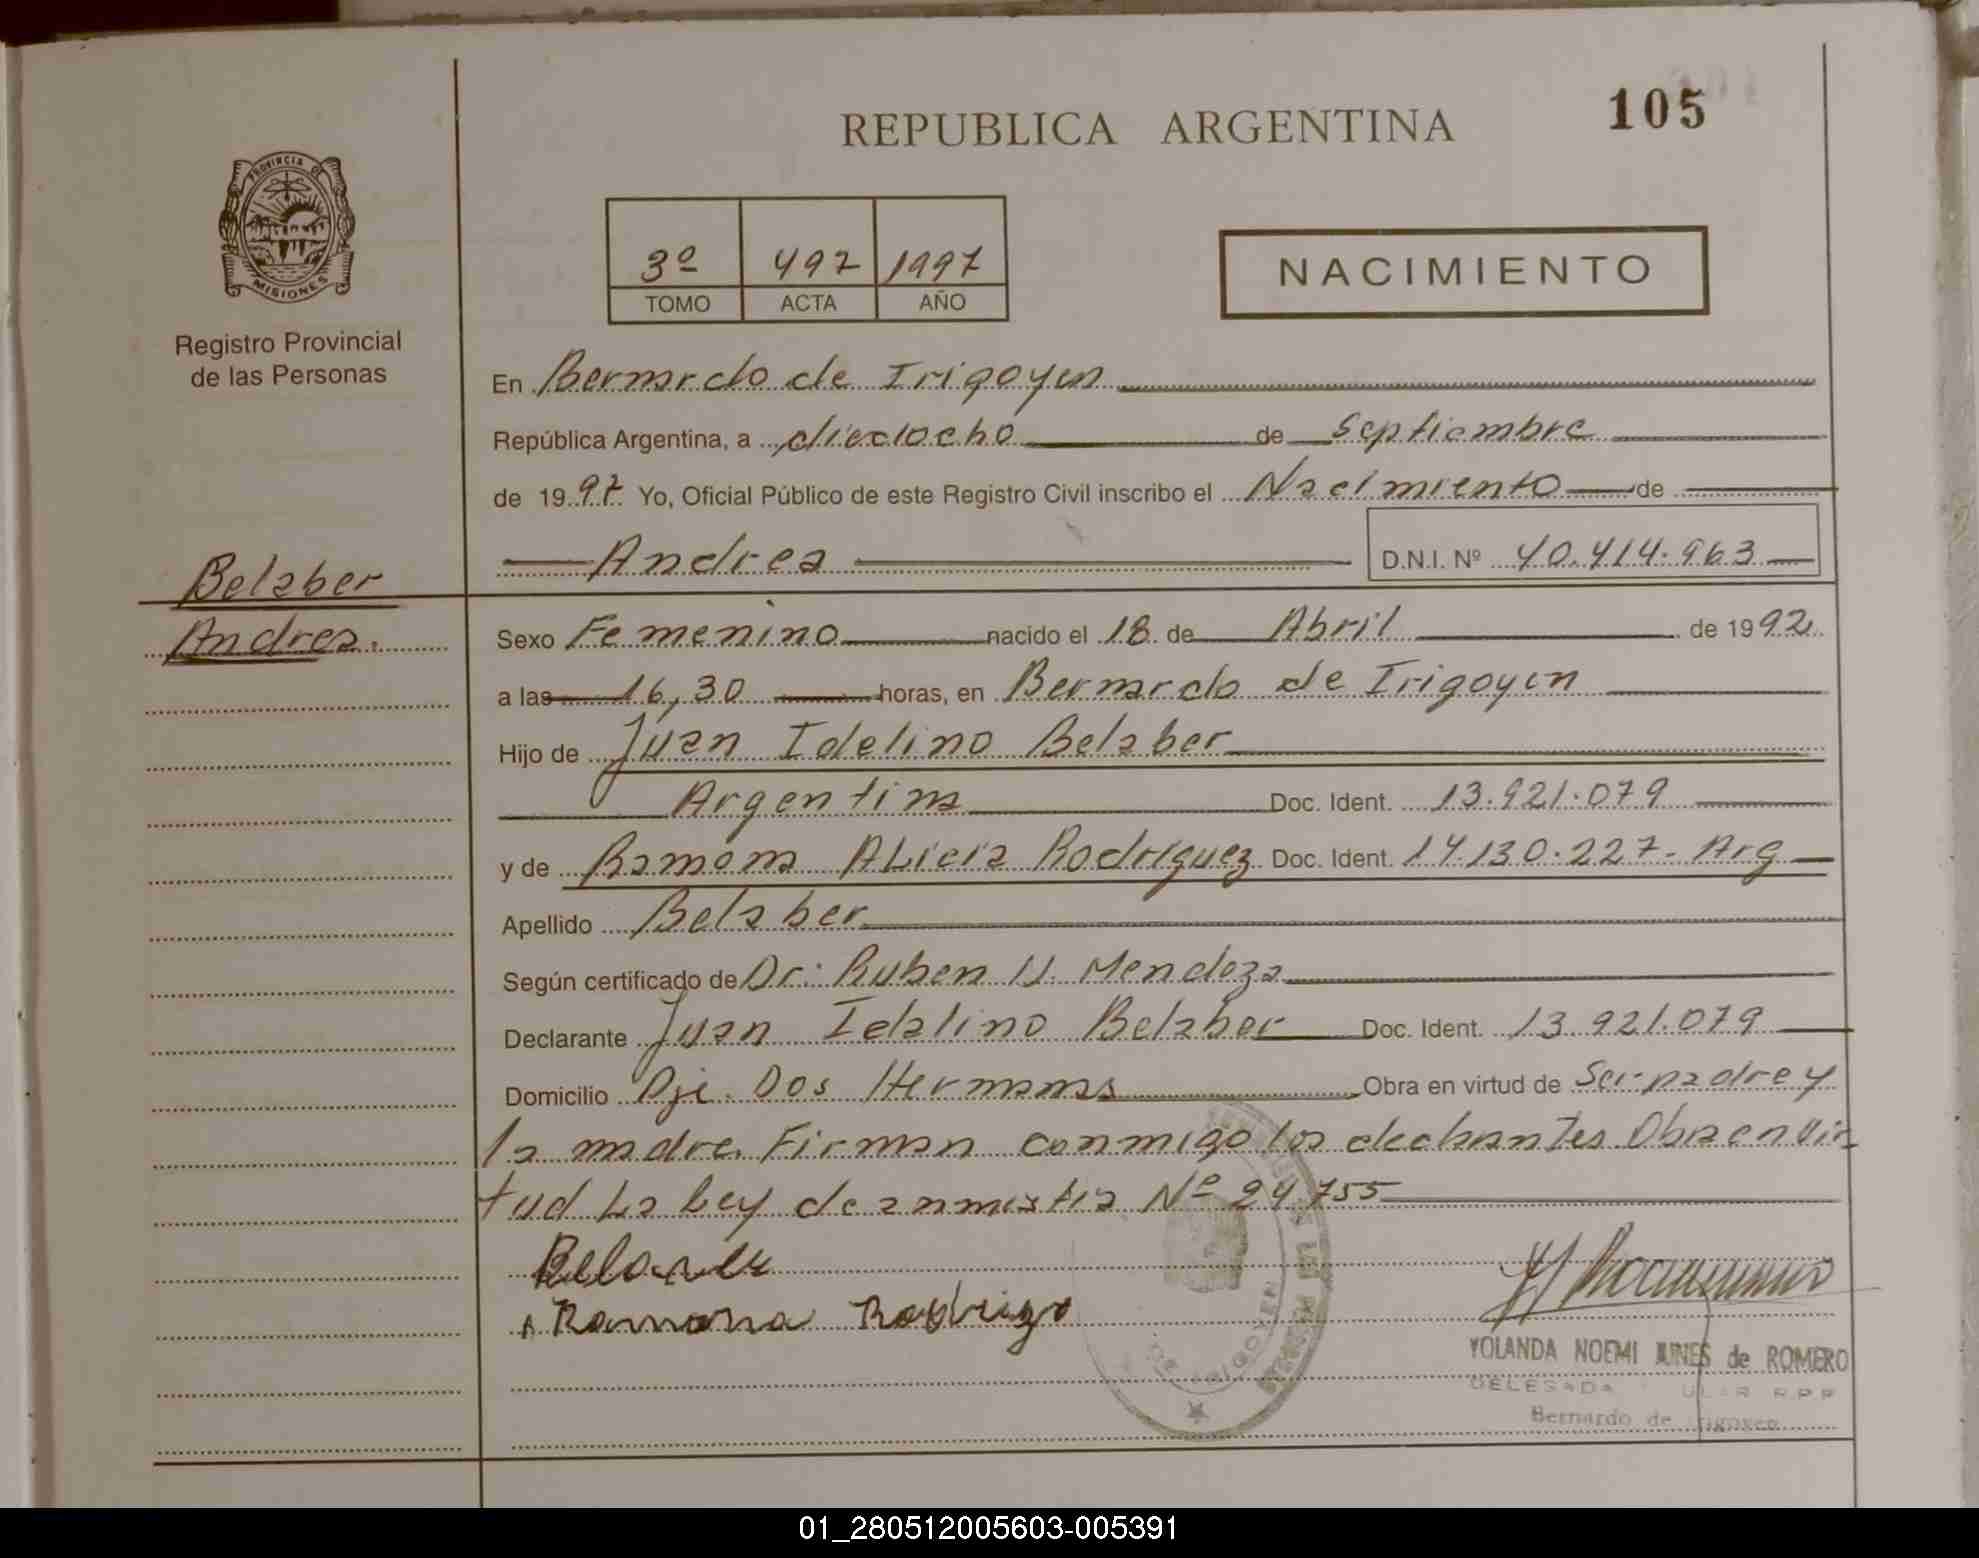 REPUBLICA ARGENTINA
105
PROVINCIA DE
MISIONES
Registro Provincial
de las Personas
3º 497 1997
TOMO ACTA AÑO
NACIMIENTO
En Bernardo de Irigoyen
República Argentina, a dieciocho de Septiembre
de 1997 Yo, Oficial Público de este Registro Civil inscribo el Nacimiento de
Andrea D.N.I. Nº 40.414.963
Belaber
Andrea.
Sexo Femenino nacido el 18 de Abril de 1992
a las 16,30 horas, en Bernardo de Irigoyen
Hijo de Juan Idelino Belaber
Argentina Doc. Ident. 13.921.079
y de Ramona Alicia Rodriguez Doc. Ident. 14.130.227- Arg
Apellido Belaber
Según certificado de Dr: Ruben N. Mendoza
Declarante Juan Idalino Belaber Doc. Ident. 13.921.079
Domicilio Pje. Dos Hermanas Obra en virtud de Ser padre y
la madre. Firman conmigo los declarantes Obra en vir
tud La Ley de anmistia Nº 24755
Ramona Rodrigo
DE IRIGOYEN
YOLANDA NOEMI JUNES de ROMERO
DELEGADA R.P.P.
Bernardo de Irigoyen
01_280512005603-005391